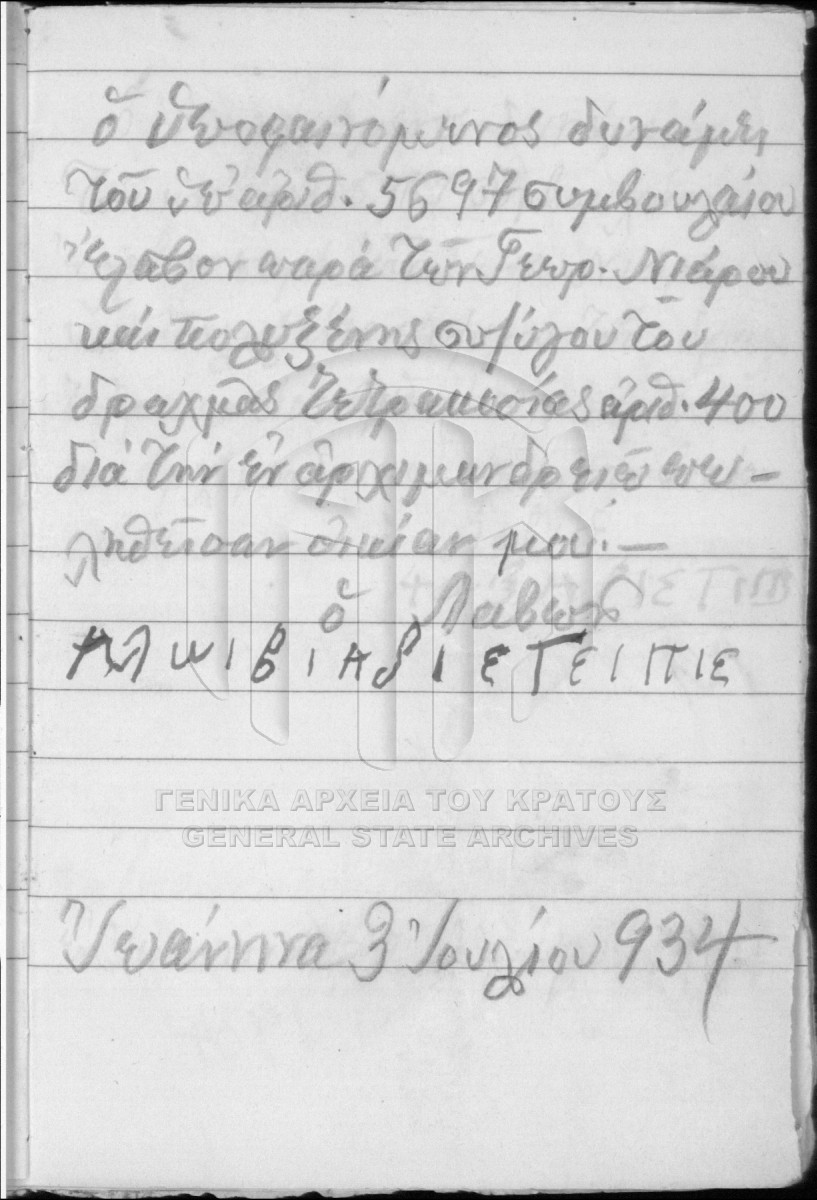 ὁ ὑποφαινόμενος δυνάμει
τοῦ ὑπ' ἀριθ. 5697 συμβουλαίου
ἔλαβον παρά τῶν Γεωρ. Νιάρου
καί Πολυξένης συζύγου του
δραχμάς τετρακοσίας ἀριθ. 400
διά τήν ἐν ἀρχιμανδρειῷ πω-
ληθεῖσαν οἰκίαν μου. —
ὁ Λαβων
ΑΛΚΙΒΙΑΔΙΕΓΕΙΠΙΕ
ΓΕΝΙΚΑ ΑΡΧΕΙΑ ΤΟΥ ΚΡΑΤΟΥΣ
GENERAL STATE ARCHIVES
Ἰωάννινα 3 Ἰουλίου 934